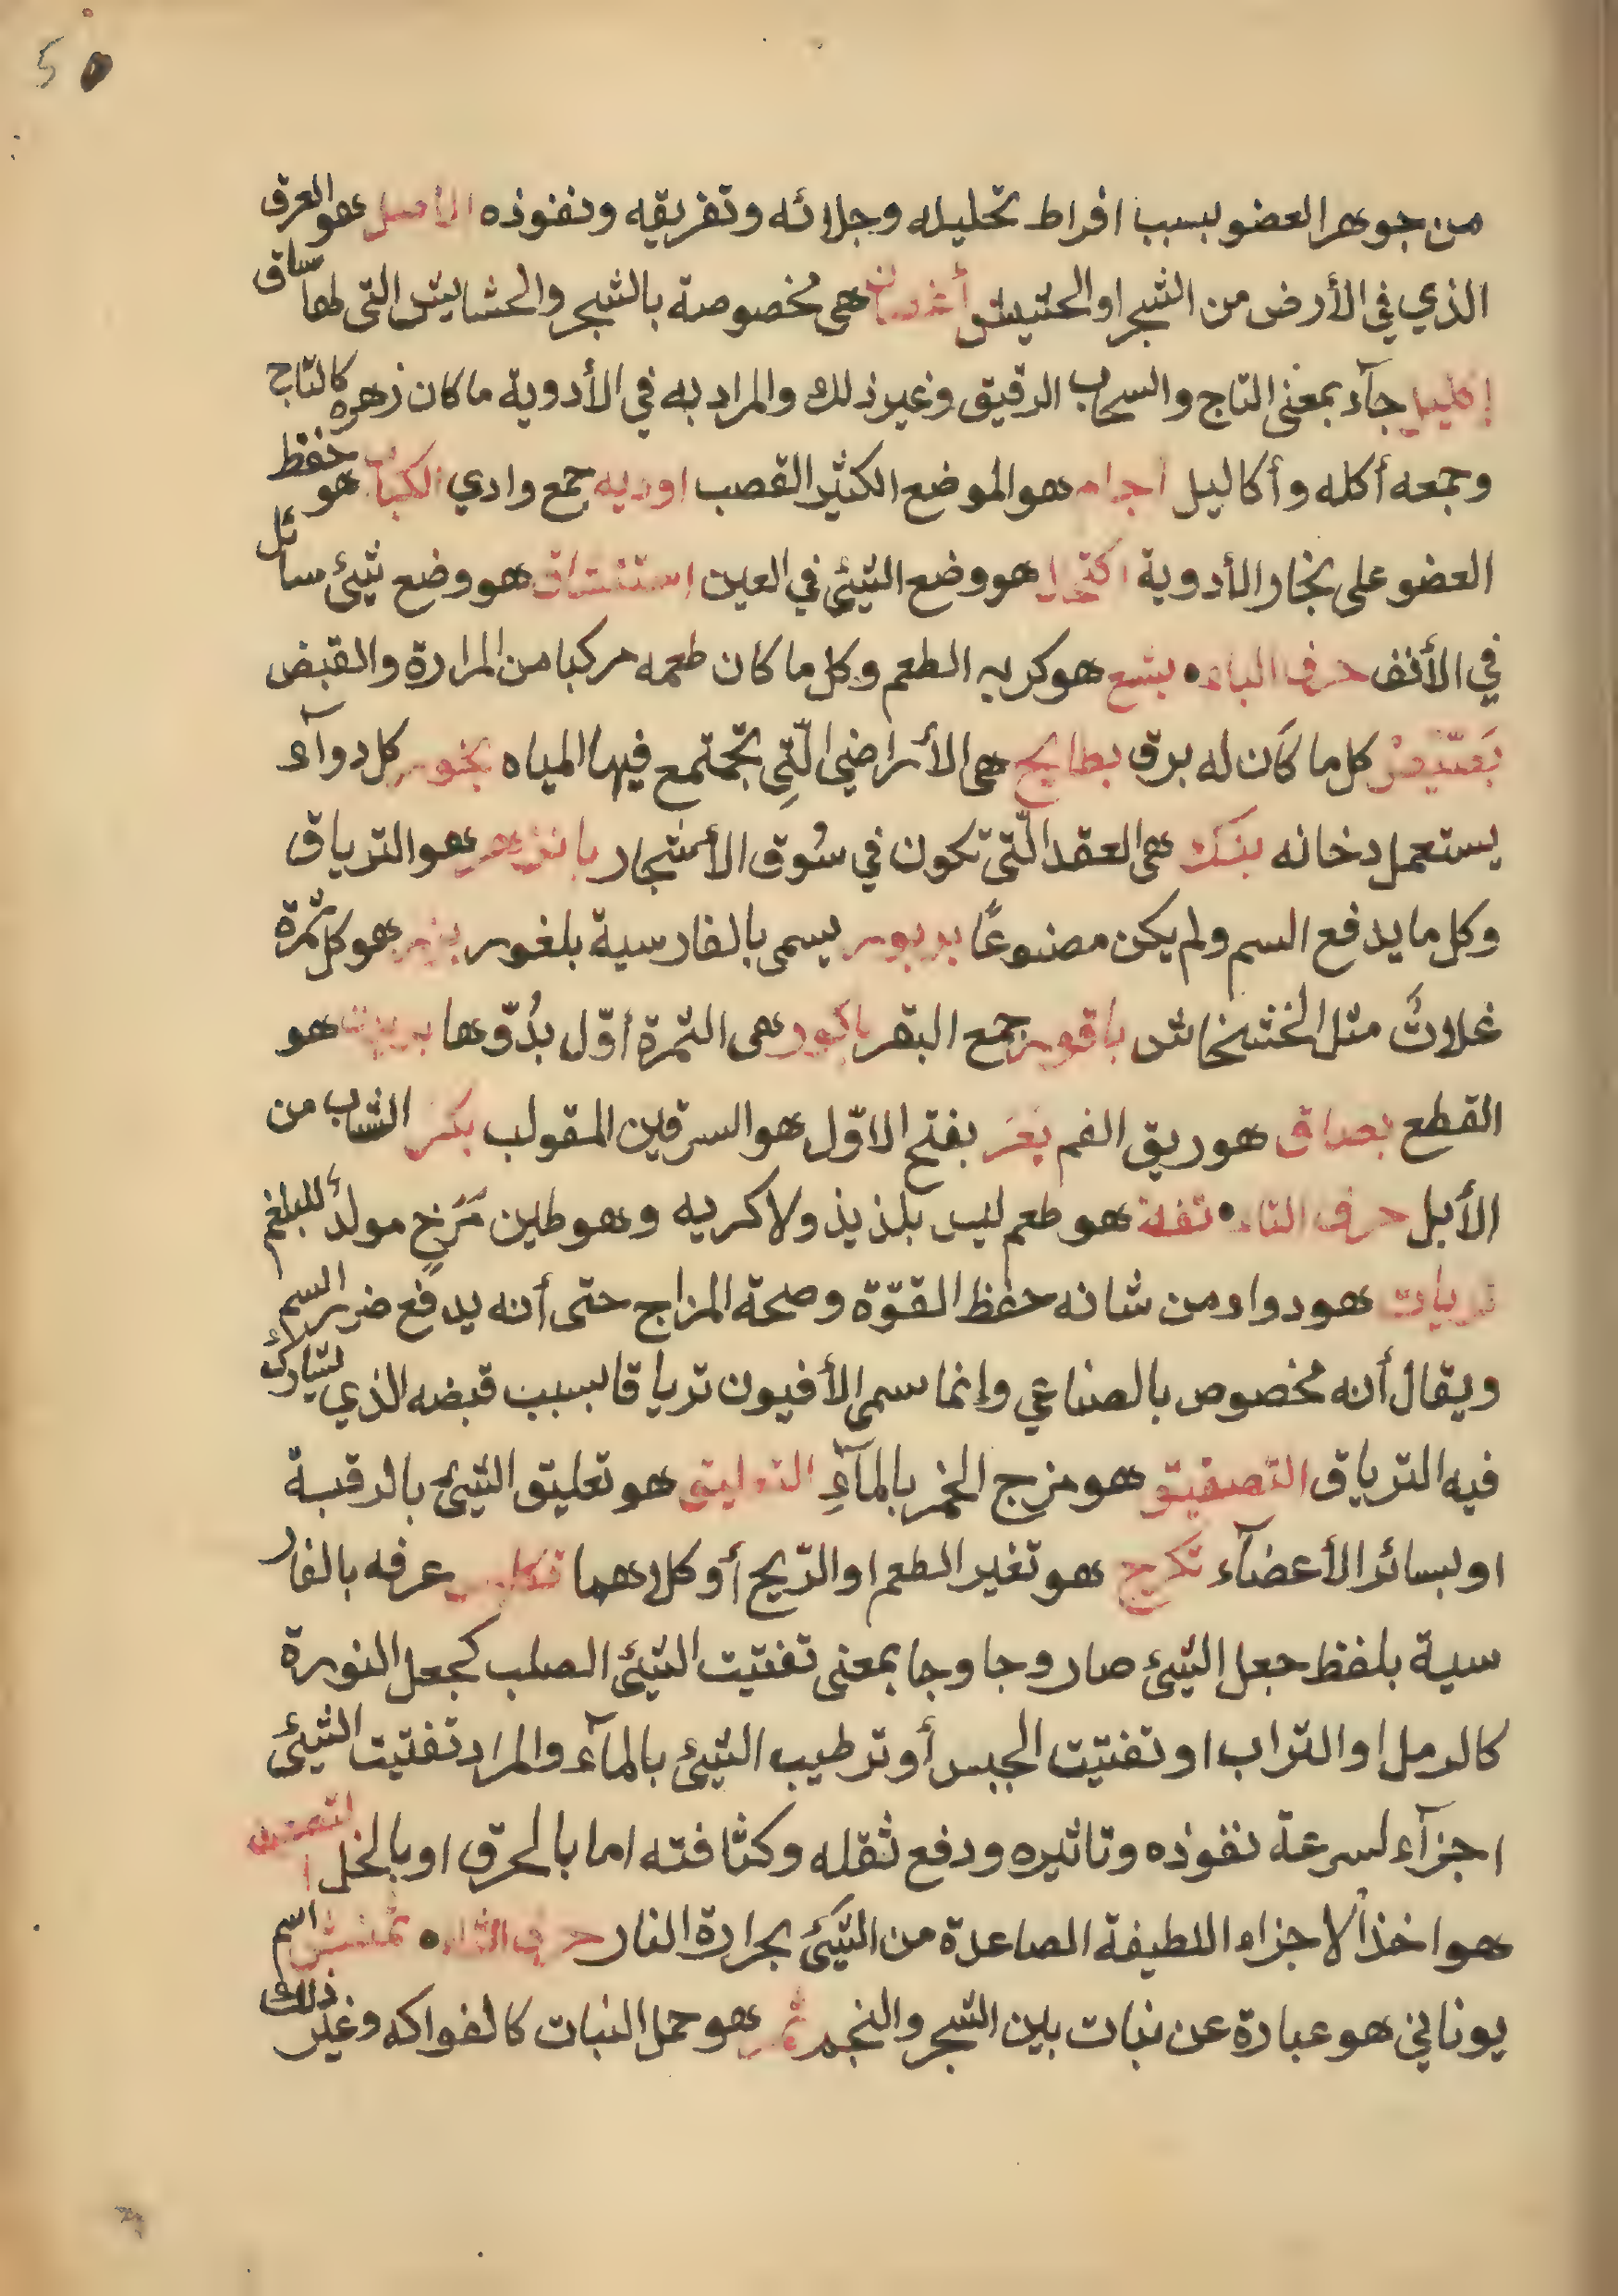 50
من جوهر العضو بسبب افراط تحليله وجلائه وتفريقه ونفوذه الأصل هو العرق
الذي في الأرض من الشجر او الحشيش أغصان هى مخصوصة بالشجر والحشايش التى لها ساق
إكليل جآء بمعنى التاج والسحاب الرقيق وغير ذلك والمراد به في الأدوية ما كان زهره كالتاج
وجمعه أكله وأكاليل اجام هو الموضع الكثير القصب اوديه جمع وادي انكباب هو حفظ
العضو على بخار الأدوية اكتحال هو وضع الشئ في العين استنشاق هو وضع شيئ سائل
في الأنف حرف الباء بشع هو كريه الطعم وكل ما كان طعمه مركبا من المرارة والقبض
كل ما كَان له برق بطايح هى الأراضى الّتِى تجتمع فيها المياه بخور كل دوآء
يستعمل دخانه بنك هى العقد الّتى تكون في سُوق الأشجار بانزهر هو الترياق
وكل ما يدفع السم ولم يكن مصنوعًا بربور يسمى بالفارسية بلغور بزر هو كل ثمرة
غلافٌ مثل الخشخاش باقور جمع البقر باكور هى الثمرة أوّل بدُوّها هو
القطع بصاق هو ريق الفم بَعَر بفتح الاوّل هو السرقين المقولب بكر الشاب من
الأبل حرف التاء تفة هو طعم ليس بلذيذ ولا كريه وهو طين مَزِج مولد للبلغم
ترياق هو دواء من شانه حفظ القوّة وصحة المزاج حتى أنه يدفع ضرر السم
ويقال أنه مخصوص بالصناعي وإنما سمى الأفيون ترياقا بسبب قبضه الذي لتشارك
فيه الترياق التصفيق هو مزج الخمر بالمآءِ التعليق هو تعليق الشئ بالرقبة
او بسائر الأعضآء تكرج هو تغير الطعم او الرّيح أو كلاهما تكليس عرفه بالفار
سية بلفظ جعل الشئ صاروجا وجا بمعنى تفتيت الشئ الصلب كجعل النورة
كالرمل او التراب او تفتيت الجبس أو ترطيب الشئ بالمآء والمراد تفتيت الشيئ
اجزآء لسرعة نفوذه وتاثيره ودفع ثقله وكثافته اما بالحرق او بالخل التصعيد
هو اخذ الاجزاء اللطيفة الصاعدة من الشئ بحرارة النار حرف الثاء ثمنش اسم
يوناني هو عبارة عن نبات بين الشجر والنجم ثمر هو حمل النبات كالفواكه وغير ذلك